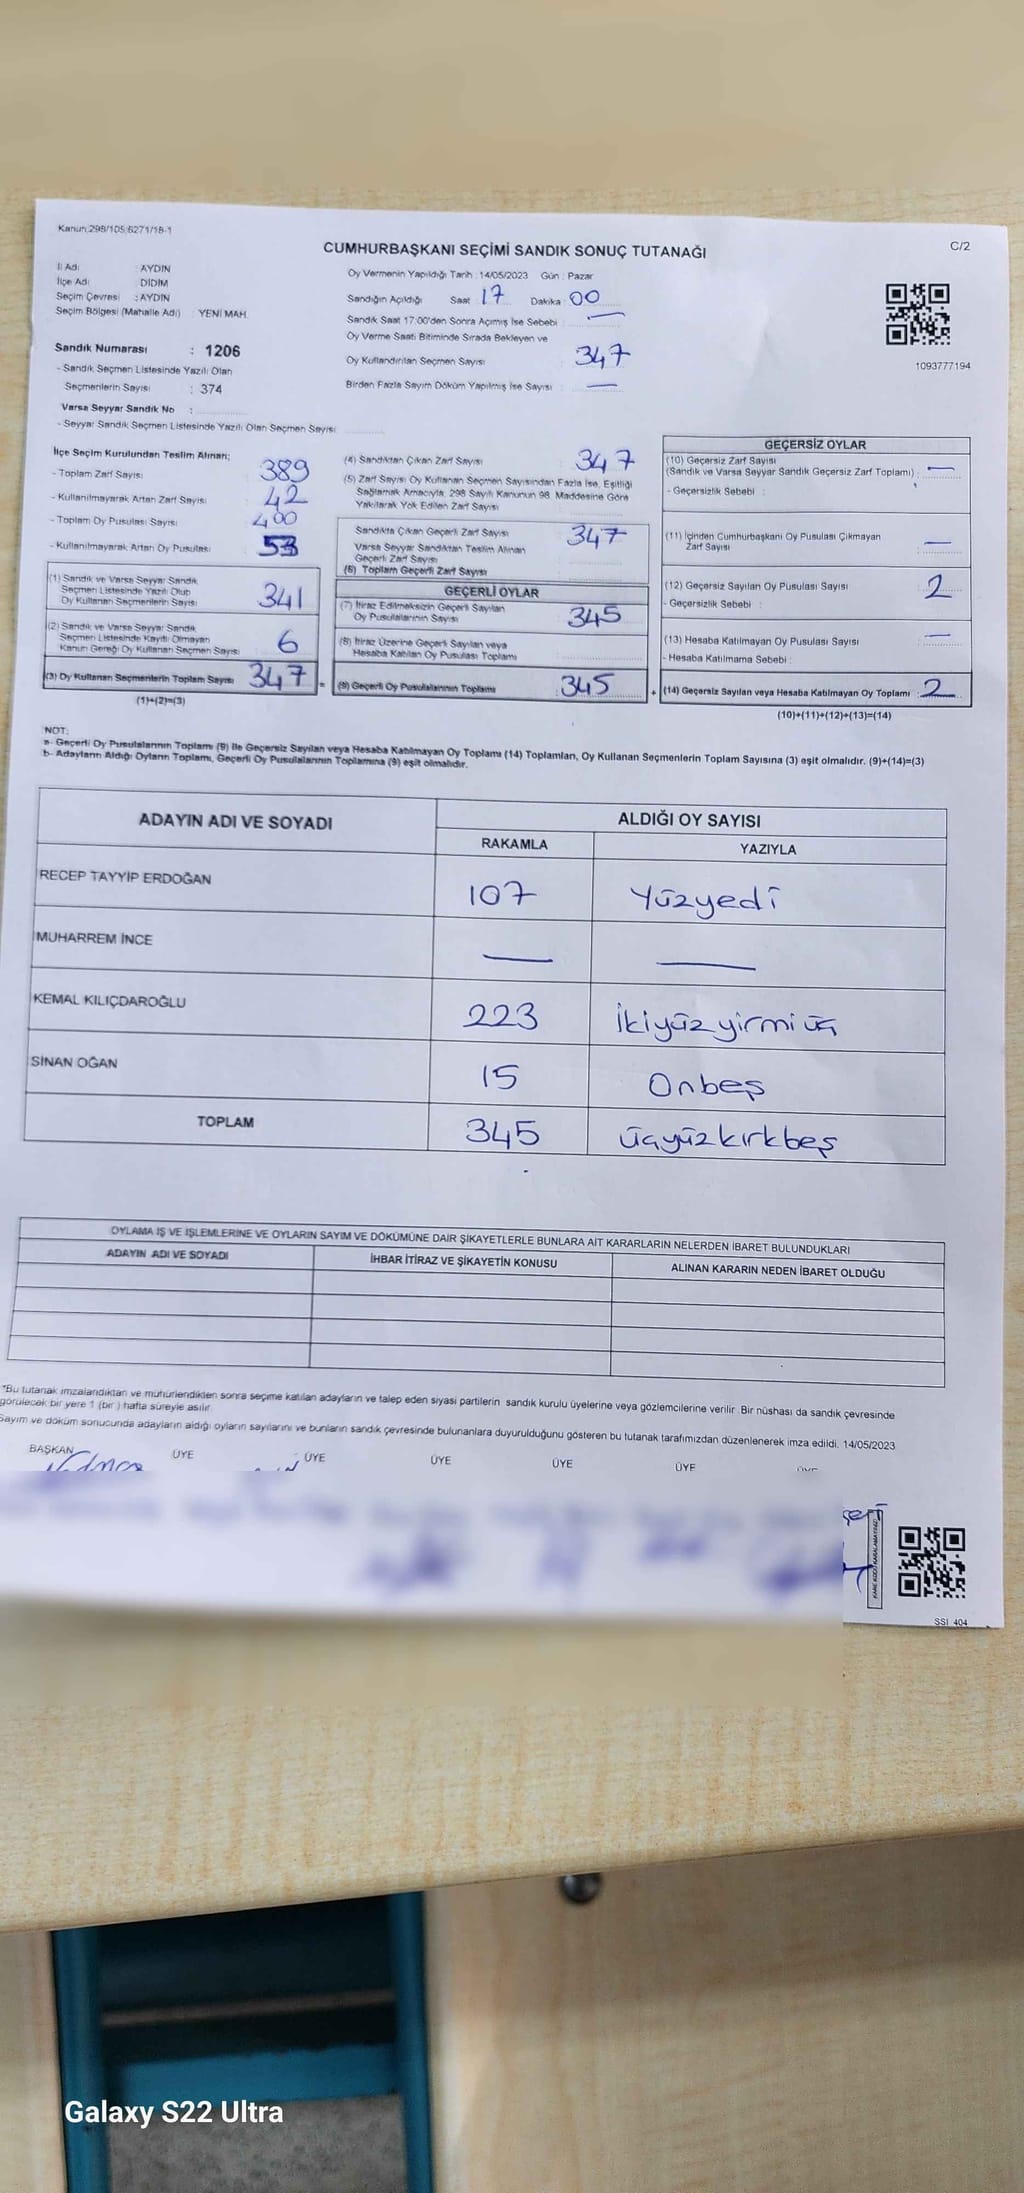 Kanun:298/105;6271/18-1
C/2
CUMHURBAŞKANI SEÇİMİ SANDIK SONUÇ TUTANAĞI
İl Adı : AYDIN
İlçe Adı : DİDİM
Seçim Çevresi : AYDIN
Seçim Bölgesi (Mahalle Adı) : YENİ MAH.
Sandık Numarası : 1206
- Sandık Seçmen Listesinde Yazılı Olan
Seçmenlerin Sayısı : 374
Varsa Seyyar Sandık No :
- Seyyar Sandık Seçmen Listesinde Yazılı Olan Seçmen Sayısı:
Oy Vermenin Yapıldığı Tarih : 14/05/2023 Gün : Pazar
Sandığın Açıldığı Saat 17 Dakika : 00
Sandık Saat 17:00'den Sonra Açımış İse Sebebi : —
Oy Verme Saati Bitiminde Sırada Bekleyen ve
Oy Kullandırılan Seçmen Sayısı : 347
Birden Fazla Sayım Döküm Yapılmış İse Sayısı : —
1093777194
İlçe Seçim Kurulundan Teslim Alınan;
- Toplam Zarf Sayısı 389
- Kullanılmayarak Artan Zarf Sayısı 42
- Toplam Oy Pusulası Sayısı 400
- Kullanılmayarak Artan Oy Pusulası 53
(1) Sandık ve Varsa Seyyar Sandık
Seçmen Listesinde Yazılı Olup
Oy Kullanan Seçmenlerin Sayısı 341
(2) Sandık ve Varsa Seyyar Sandık
Seçmen Listesinde Kayıtlı Olmayan
Kanun Gereği Oy Kullanan Seçmen Sayısı 6
(3) Oy Kullanan Seçmenlerin Toplam Sayısı 347 =
(1)+(2)=(3)
(4) Sandıktan Çıkan Zarf Sayısı 347
(5) Zarf Sayısı Oy Kullanan Seçmen Sayısından Fazla İse, Eşitliği
Sağlamak Amacıyla, 298 Sayılı Kanunun 98. Maddesine Göre
Yakılarak Yok Edilen Zarf Sayısı
Sandıkta Çıkan Geçerli Zarf Sayısı 347
Varsa Seyyar Sandıktan Teslim Alınan
Geçerli Zarf Sayısı
(6) Toplam Geçerli Zarf Sayısı
GEÇERLİ OYLAR
(7) İtiraz Edilmeksizin Geçerli Sayılan
Oy Pusulalarının Sayısı 345
(8) İtiraz Üzerine Geçerli Sayılan veya
Hesaba Katılan Oy Pusulası Toplamı
(9) Geçerli Oy Pusulalarının Toplamı 345 +
GEÇERSİZ OYLAR
(10) Geçersiz Zarf Sayısı
(Sandık ve Varsa Seyyar Sandık Geçersiz Zarf Toplamı) : —
- Geçersizlik Sebebi :
(11) İçinden Cumhurbaşkanı Oy Pusulası Çıkmayan
Zarf Sayısı —
(12) Geçersiz Sayılan Oy Pusulası Sayısı 2
- Geçersizlik Sebebi :
(13) Hesaba Katılmayan Oy Pusulası Sayısı —
- Hesaba Katılmama Sebebi :
(14) Geçersiz Sayılan veya Hesaba Katılmayan Oy Toplamı 2
(10)+(11)+(12)+(13)=(14)
NOT:
a- Geçerli Oy Pusulalarının Toplamı (9) ile Geçersiz Sayılan veya Hesaba Katılmayan Oy Toplamı (14) Toplamları, Oy Kullanan Seçmenlerin Toplam Sayısına (3) eşit olmalıdır. (9)+(14)=(3)
b- Adayların Aldığı Oyların Toplamı, Geçerli Oy Pusulalarının Toplamına (9) eşit olmalıdır.
ADAYIN ADI VE SOYADI ALDIĞI OY SAYISI
RAKAMLA YAZIYLA
RECEP TAYYİP ERDOĞAN 107 Yüzyedi
MUHARREM İNCE — —
KEMAL KILIÇDAROĞLU 223 İkiyüzyirmiüç
SİNAN OĞAN 15 Onbeş
TOPLAM 345 üçyüzkırkbeş
OYLAMA İŞ VE İŞLEMLERİNE VE OYLARIN SAYIM VE DÖKÜMÜNE DAİR ŞİKAYETLERLE BUNLARA AİT KARARLARIN NELERDEN İBARET BULUNDUKLARI
ADAYIN ADI VE SOYADI İHBAR İTİRAZ VE ŞİKAYETİN KONUSU ALINAN KARARIN NEDEN İBARET OLDUĞU
*Bu tutanak imzalandıktan ve mühürlendikten sonra seçime katılan adayların ve talep eden siyasi partilerin sandık kurulu üyelerine veya gözlemcilerine verilir. Bir nüshası da sandık çevresinde
görülecek bir yere 1 (bir ) hafta süreyle asılır.
Sayım ve döküm sonucunda adayların aldığı oyların sayılarını ve bunların sandık çevresinde bulunanlara duyurulduğunu gösteren bu tutanak tarafımızdan düzenlenerek imza edildi. 14/05/2023
BAŞKAN ÜYE ÜYE ÜYE ÜYE ÜYE ÜYE
KARE KODU KARALAMAYINIZ
SSİ 404
Galaxy S22 Ultra